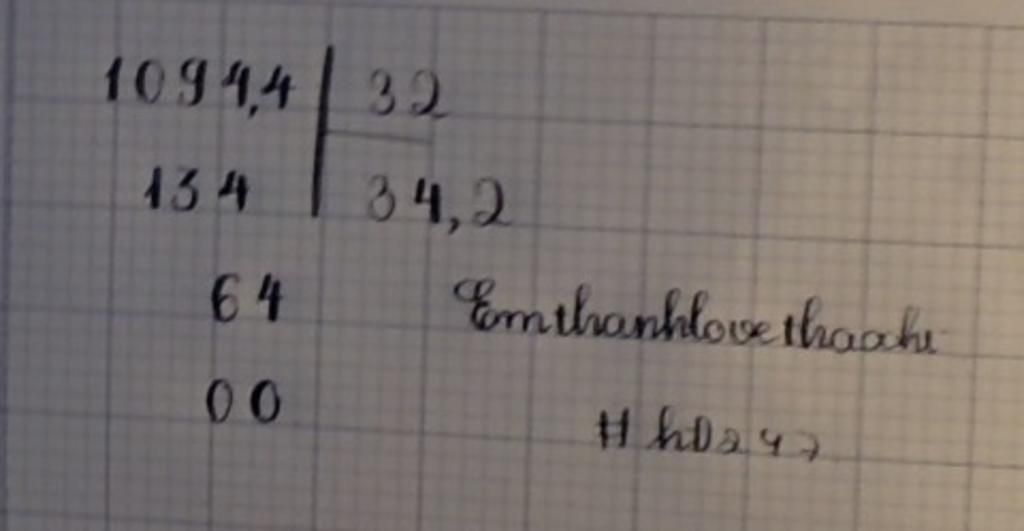 1094,4 32
134 34,2
64
Emthanhlovethaochi
00
# h0247